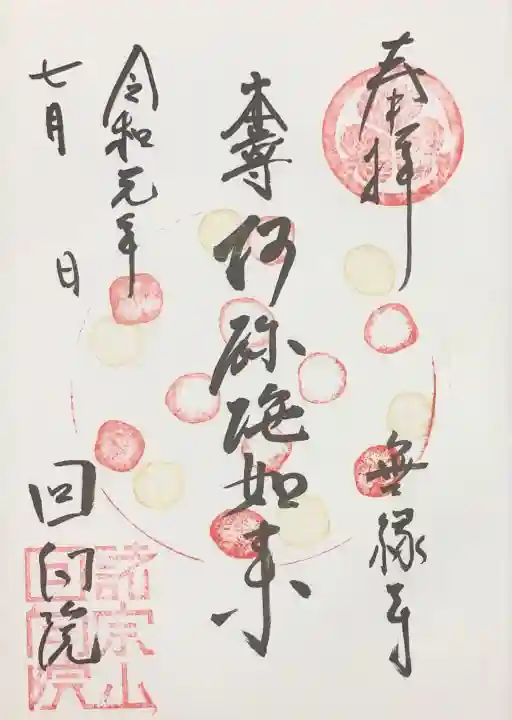 奉拝
無縁寺
本尊 阿弥陀如来
令和元年
七月 日
回向院
諸宗山
回向院